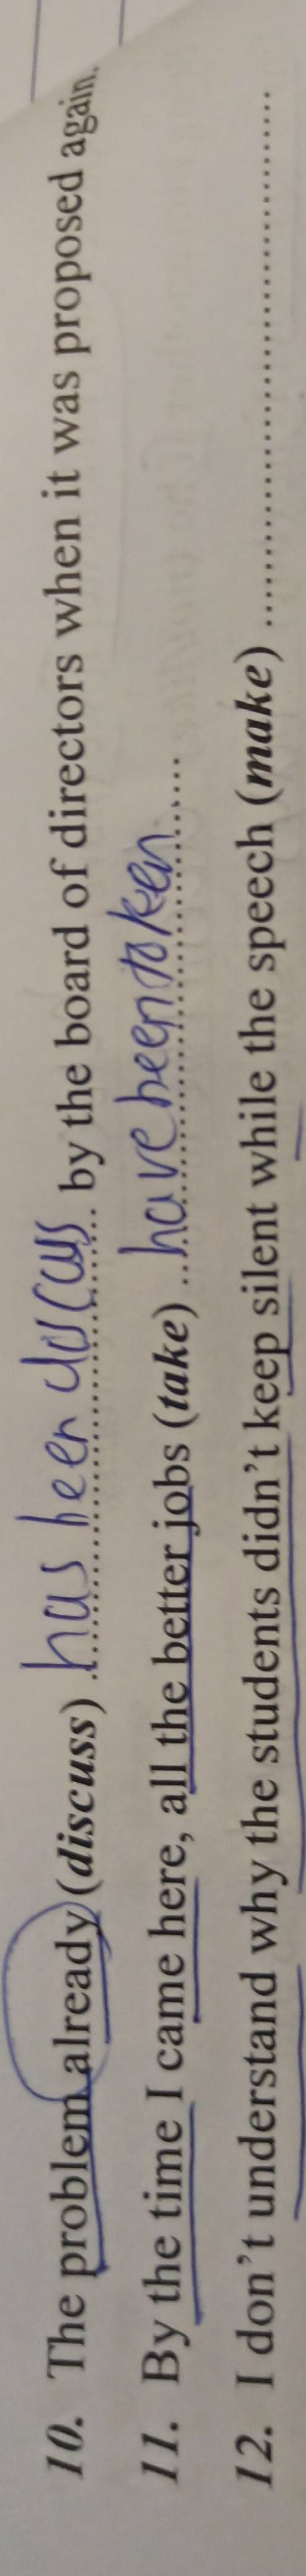 10. The problem already (discuss) has been discuss by the board of directors when it was proposed again.
11. By the time I came here, all the better jobs (take) have been taken
12. I don't understand why the students didn't keep silent while the speech (make) ....................